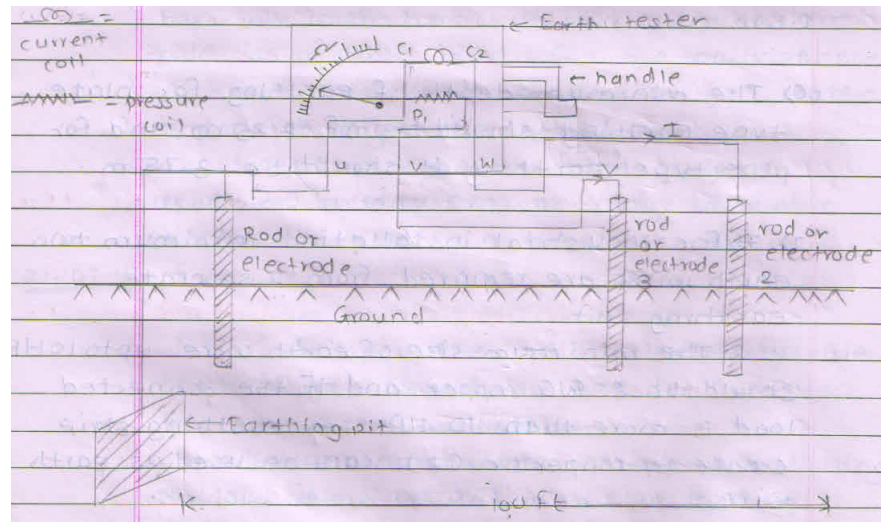 = =
current
coil
= pressure
coil
← Earth tester
C1 C2
← handle
P1
I
U V W V
Rod or
electrode
rod
or
electrode
3
rod or
electrode
2
Ground
← Earthing pit